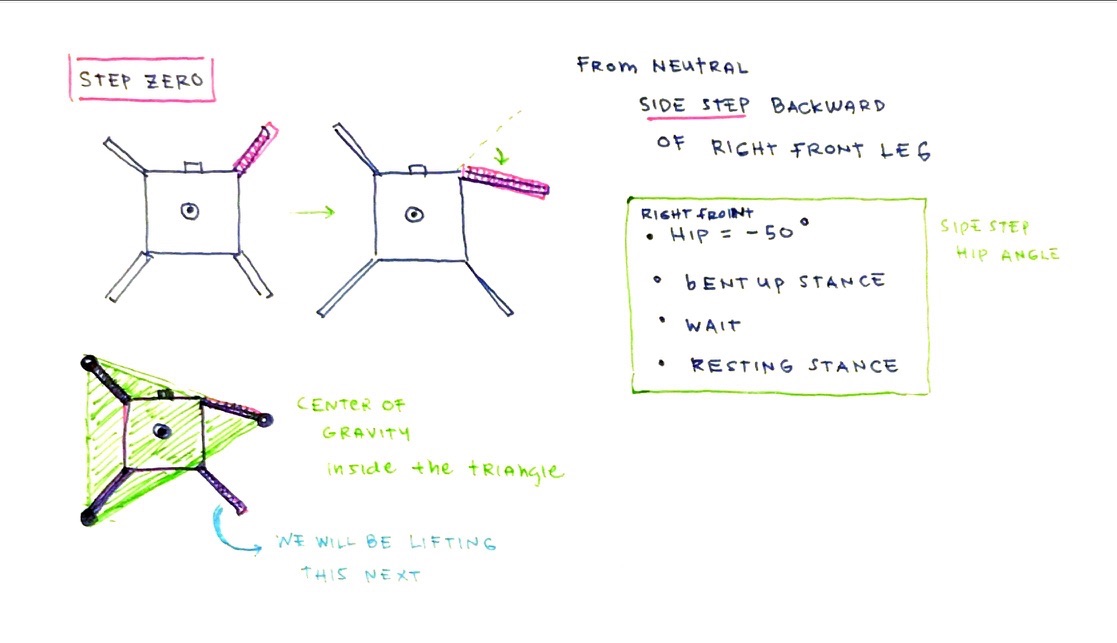 STEP ZERO
FROM NEUTRAL
SIDE STEP BACKWARD
OF RIGHT FRONT LEG
RIGHT FROINT
• HIP = -50°
• bENT UP STANCE
• WAIT
• RESTING STANCE
SIDE STEP
HIP ANGLE
CENTER OF
GRAVITY
inside the TRIANGLE
WE WILL BE LIFTING
THIS NEXT